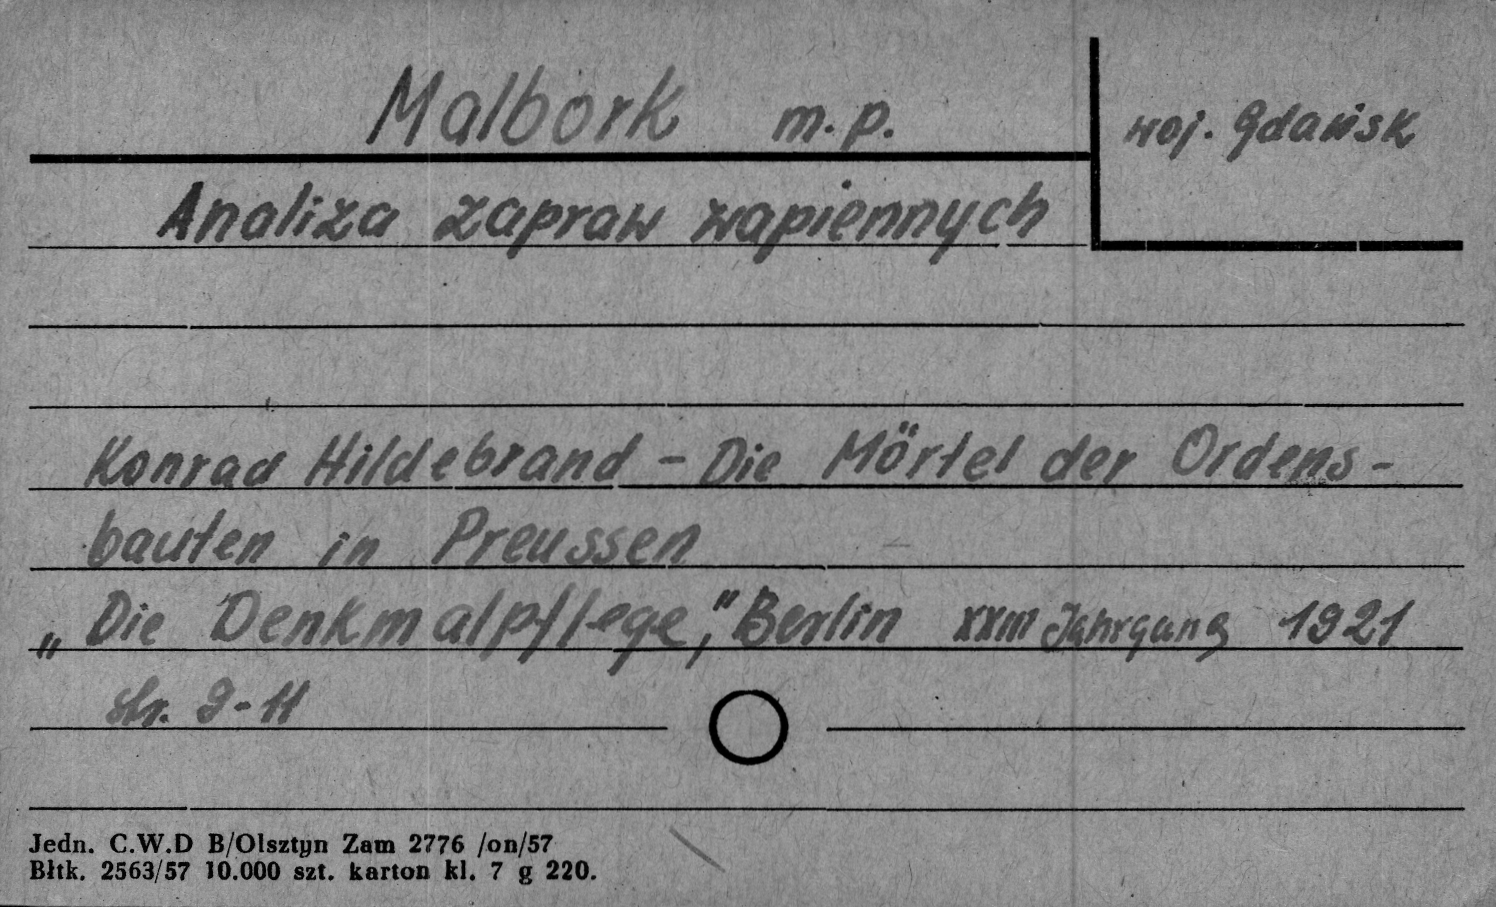 Malbork m.p.
woj. Gdańsk
Analiza zapraw wapiennych
Konrad Hildebrand - Die Mörtel der Ordens-
bauten in Preussen
„Die Denkmalpflege," Berlin XXIII Jahrgang 1921
str. 9-11
Jedn. C.W.D B/Olsztyn Zam 2776 /on/57
Błtk. 2563/57 10.000 szt. karton kl. 7 g 220.